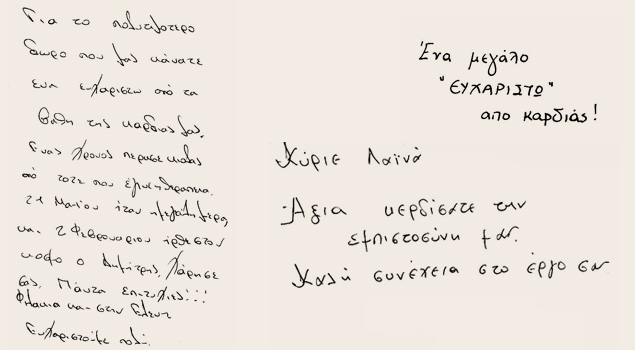 Για το πολυτιμοτερο
δωρο που μας κάνατε
ενα ευχαριστω από τα
βαθη της καρδιας μας.
Ενας χρονος περασε κιολας
από τοτε που
21 Μαϊου ηταν η μεγαλη μερα,
και 2 Φεβρουαριου ηρθε στον
κοσμο ο Δημητρης, χάρη σε
σας. Πάντα επιτυχιες!!!
Φιλακια και στην
Ευχαριστούμε πολύ.
Ένα μεγάλο
"ΕΥΧΑΡΙΣΤΩ"
απο καρδιάς!
Κύριε Λαϊνά
Αξια κερδίσατε την
εμπιστοσύνη μας.
Καλή συνέχεια στο έργο σας